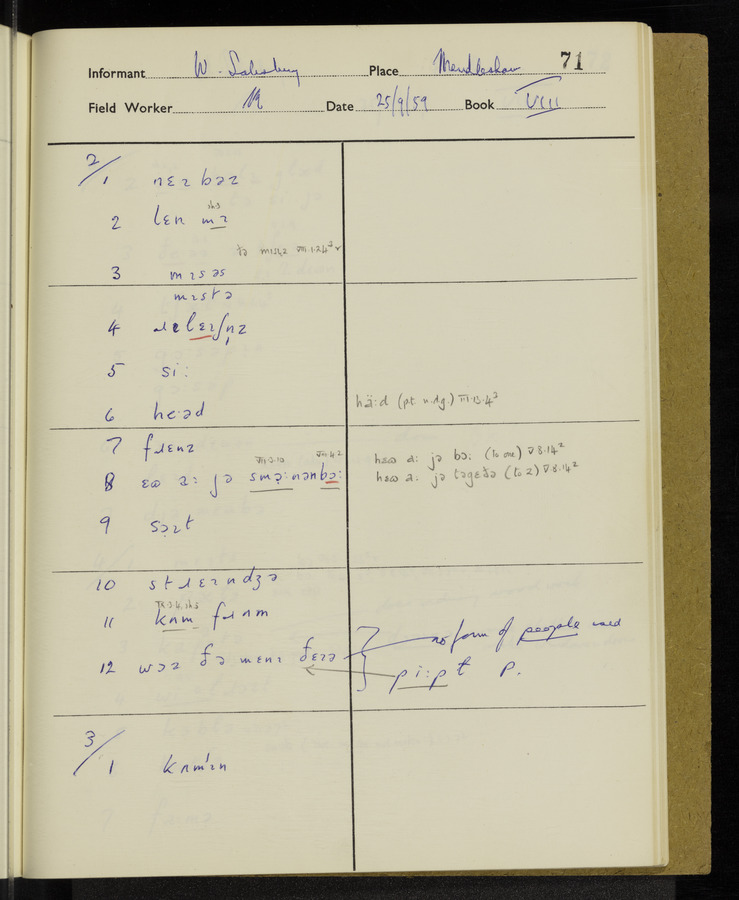 71
Informant W. Salesbury Place Mendlesham
Field Worker Date 25/9/59 Book VIII
2/1 nɛɪbəz
2 lɛn mɪ
3 mɪsəs
mɪstə
4 ɹeleɪʃnz
5 si:
6 he:əd
hä:d (pt n.dg.) VI.13.4²
7 fɹɛnz
8 ɛω a: jə smɔ:nənbɔ:
hɛω a: jə bɔ: (to one) V 8.14²
hɛω a: jə təgɛðə (to 2) V 8.14²
9 sɔ:t
10 stɹɛɪndʒə
11 kʌm fɹʌm
12 wɔz ðə mɛnɪ ðɛə
no form of people used
pi:pt p.
3/1 kʌmɪn